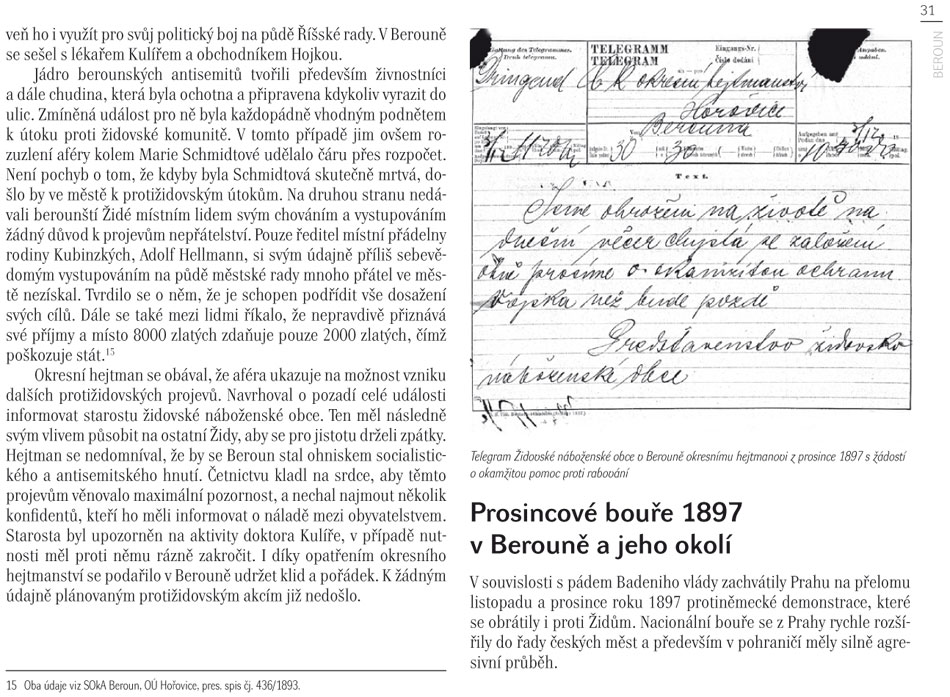 31
BEROUN
veň ho i využít pro svůj politický boj na půdě Říšské rady. V Berouně
se sešel s lékařem Kulířem a obchodníkem Hojkou.
Jádro berounských antisemitů tvořili především živnostníci
a dále chudina, která byla ochotna a připravena kdykoliv vyrazit do
ulic. Zmíněná událost pro ně byla každopádně vhodným podnětem
k útoku proti židovské komunitě. V tomto případě jim ovšem ro-
zuzlení aféry kolem Marie Schmidtové udělalo čáru přes rozpočet.
Není pochyb o tom, že kdyby byla Schmidtová skutečně mrtvá, do-
šlo by ve městě k protižidovským útokům. Na druhou stranu nedá-
vali berounští Židé místním lidem svým chováním a vystupováním
žádný důvod k projevům nepřátelství. Pouze ředitel místní přádelny
rodiny Kubinzkých, Adolf Hellmann, si svým údajně příliš sebevě-
domým vystupováním na půdě městské rady mnoho přátel ve měs-
tě nezískal. Tvrdilo se o něm, že je schopen podřídit vše dosažení
svých cílů. Dále se také mezi lidmi říkalo, že nepravdivě přiznává
své příjmy a místo 8000 zlatých zdaňuje pouze 2000 zlatých, čímž
poškozuje stát.15
Okresní hejtman se obával, že aféra ukazuje na možnost vzniku
dalších protižidovských projevů. Navrhoval o pozadí celé události
informovat starostu židovské náboženské obce. Ten měl následně
svým vlivem působit na ostatní Židy, aby se pro jistotu drželi zpátky.
Hejtman se nedomníval, že by se Beroun stal ohniskem socialistic-
kého a antisemitského hnutí. Četnictvu kladl na srdce, aby těmto
projevům věnovalo maximální pozornost, a nechal najmout několik
konfidentů, kteří ho měli informovat o náladě mezi obyvatelstvem.
Starosta byl upozorněn na aktivity doktora Kulíře, v případě nut-
nosti měl proti němu rázně zakročit. I díky opatřením okresního
hejtmanství se podařilo v Berouně udržet klid a pořádek. K žádným
údajně plánovaným protižidovským akcím již nedošlo.
15 Oba údaje viz SOkA Beroun, OÚ Hořovice, pres. spis čj. 436/1893.
TELEGRAMM
TELEGRAM
Eingangs-Nr.
Číslo dodání
Dringend
k okresní hejtmanství
Hořovice
Berouna
30 30
Text.
Jsme ohroženi na životě na
dnešní večer chystá se založení
ohně prosíme o okamžitou ochranu
vojska než bude pozdě
Představenstvo židovsko
náboženské obce
Telegram Židovské náboženské obce v Berouně okresnímu hejtmanovi z prosince 1897 s žádostí
o okamžitou pomoc proti rabování
Prosincové bouře 1897
v Berouně a jeho okolí
V souvislosti s pádem Badeniho vlády zachvátily Prahu na přelomu
listopadu a prosince roku 1897 protiněmecké demonstrace, které
se obrátily i proti Židům. Nacionální bouře se z Prahy rychle rozší-
řily do řady českých měst a především v pohraničí měly silně agre-
sivní průběh.